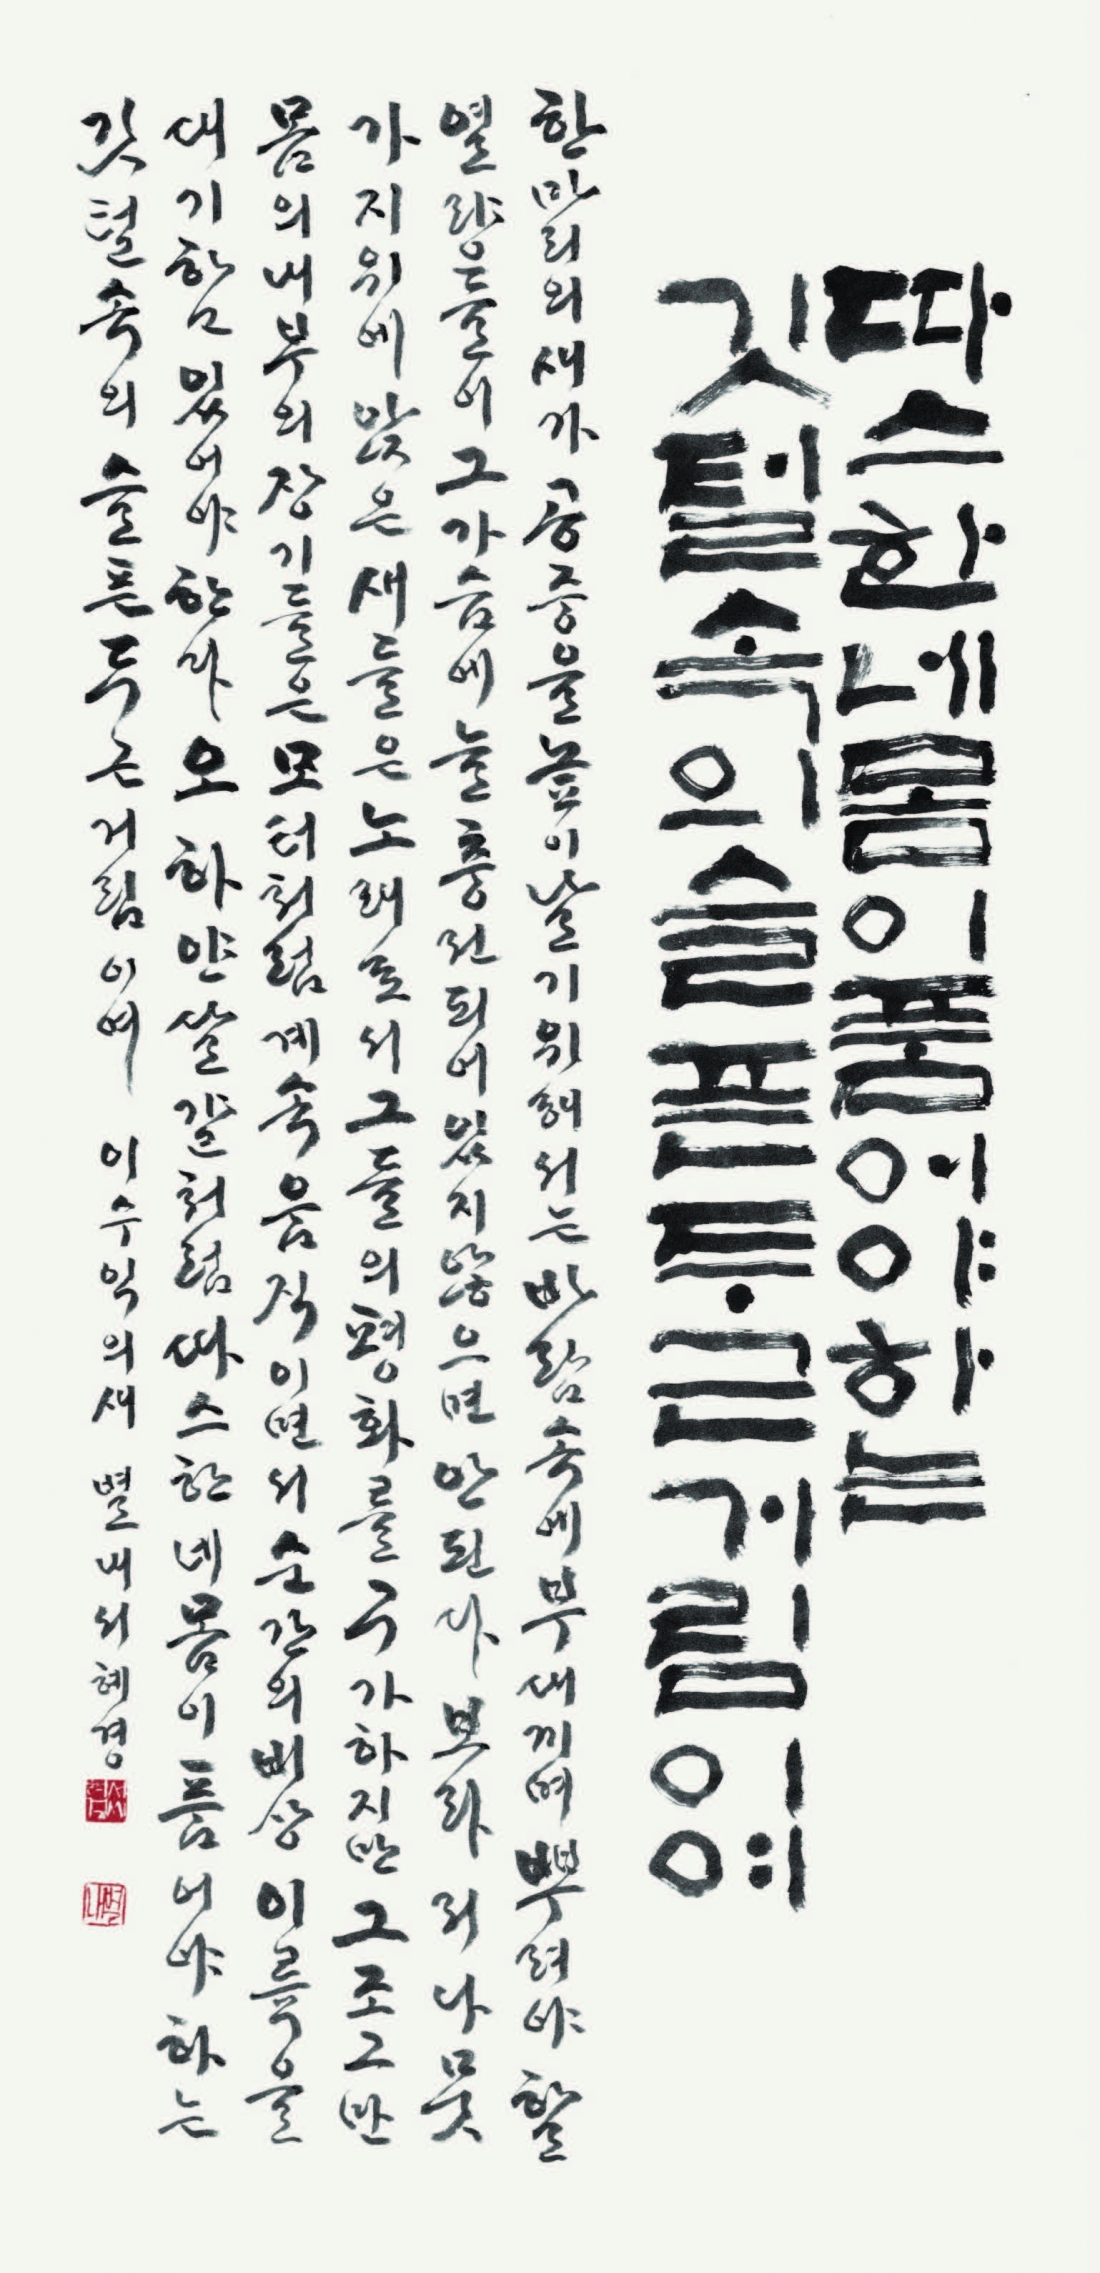 따스한네몸이품어야하는
깃털속의슬픈두근거림이여
한마리의새가공중을높이날기위해서는바람속에부대끼며뿌려야할
열량들이그가슴에늘충전되어있지않으면안된다 보라 저 나뭇
가지위에앉은새들은노래로서그들의평화를구가하지만그조그만
몸의내부의장기들은모터처럼계속움직이면서순간의비상이륙을
대기하고있어야한다 오 하얀달걀처럼따스한네몸이품어야하는
깃털속의슬픈두근거림이여 이수익의새 별내서혜경
별내